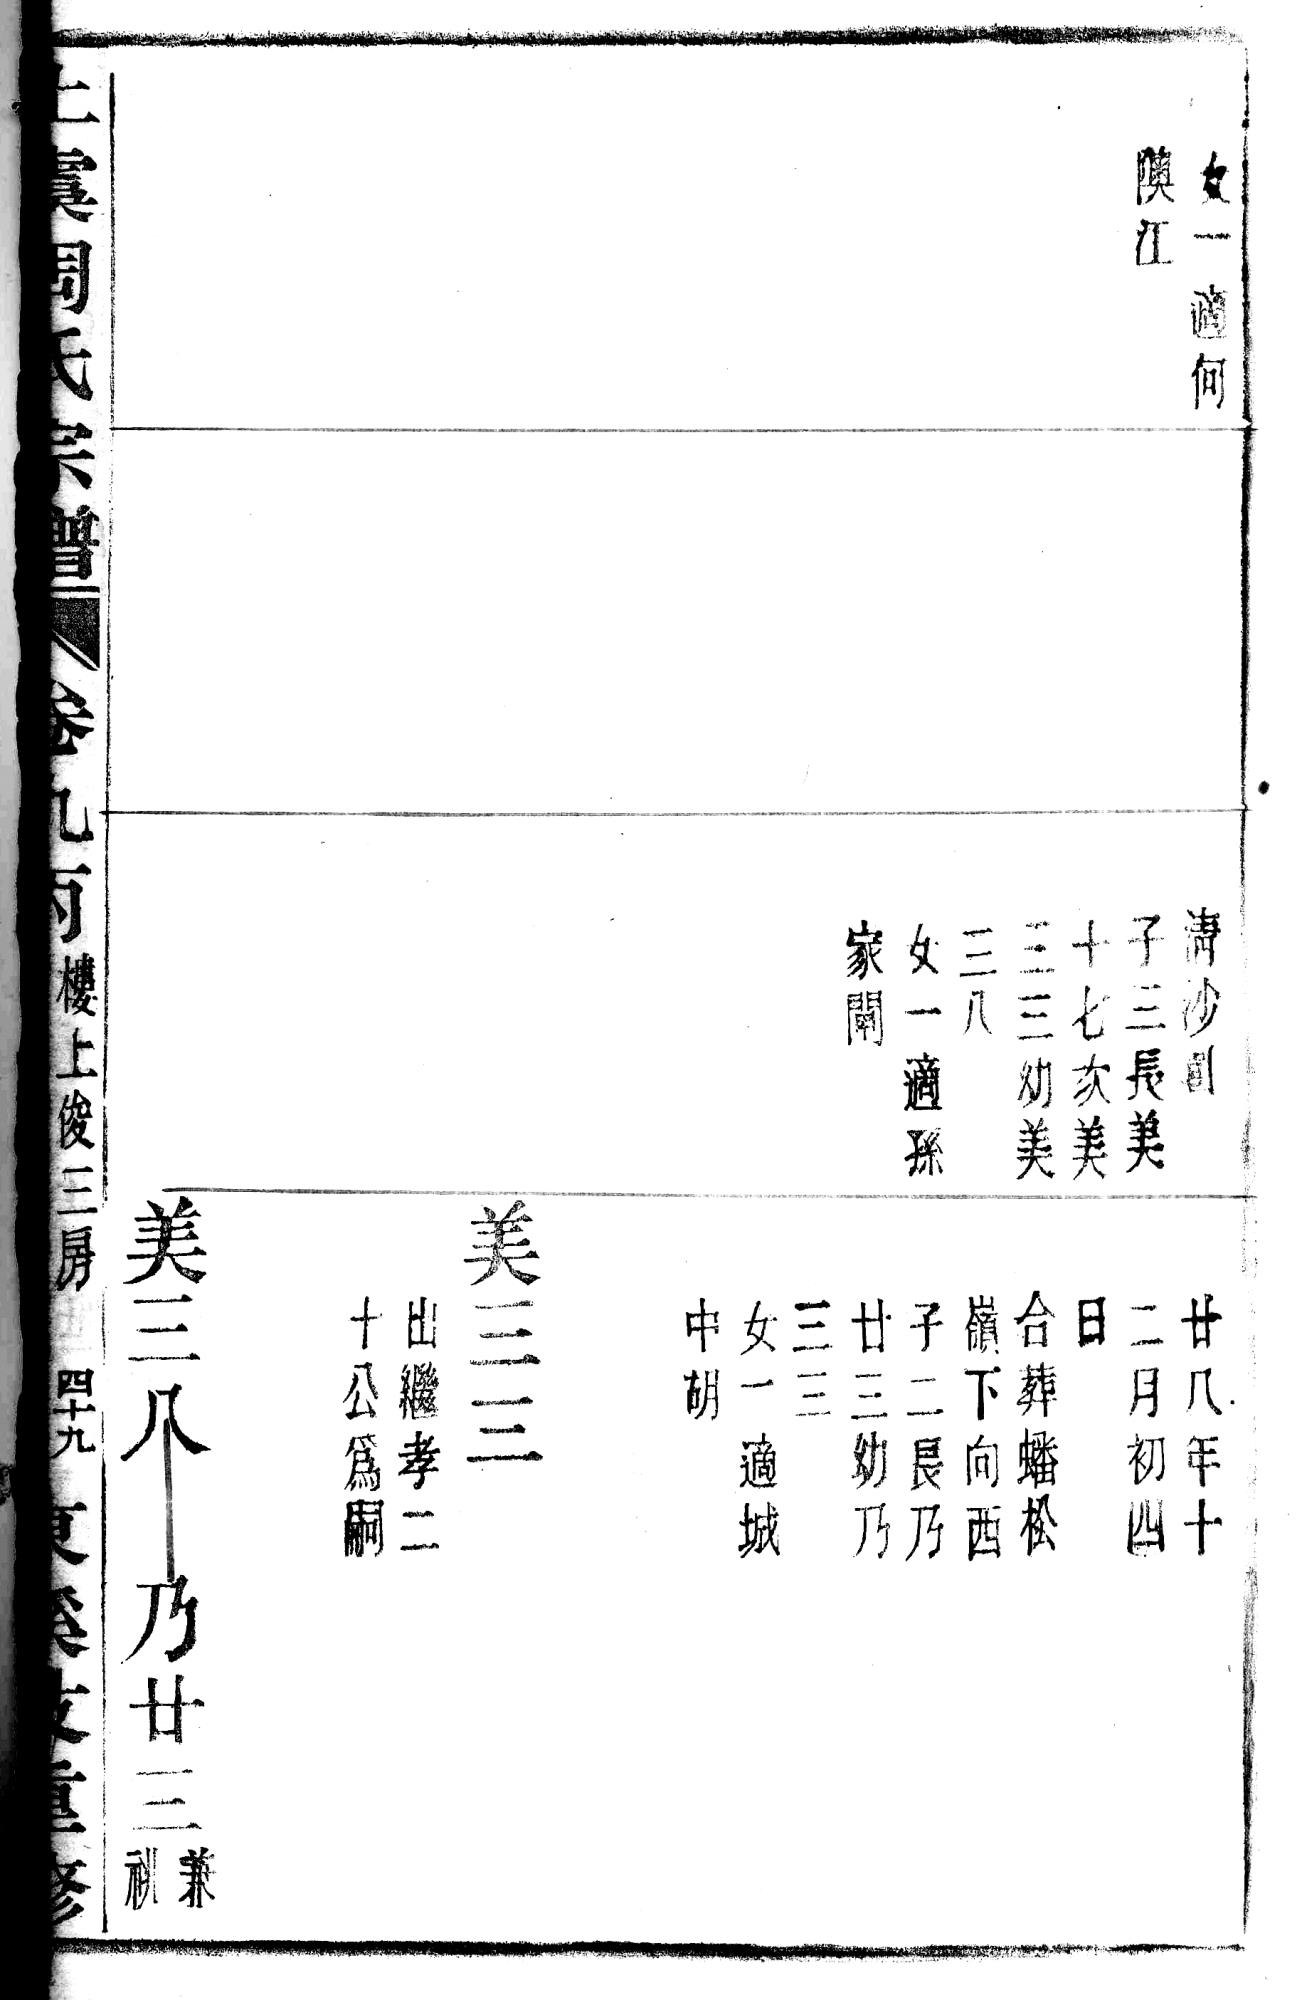 女一適何
隩江
淸沙
子三長美
十七次美
三三幼美
三八
女一適孫
家閘
廿八年十
二月初四
日
合葬蟠松
嶺下向西
子二長乃
廿三幼乃
三三
女一適城
中胡
美三三
出繼孝二
十公爲嗣
美三八
乃廿三
兼
祧
上虞周氏宗譜
卷九丙
樓上俊三房
四十九
東溪攸重修